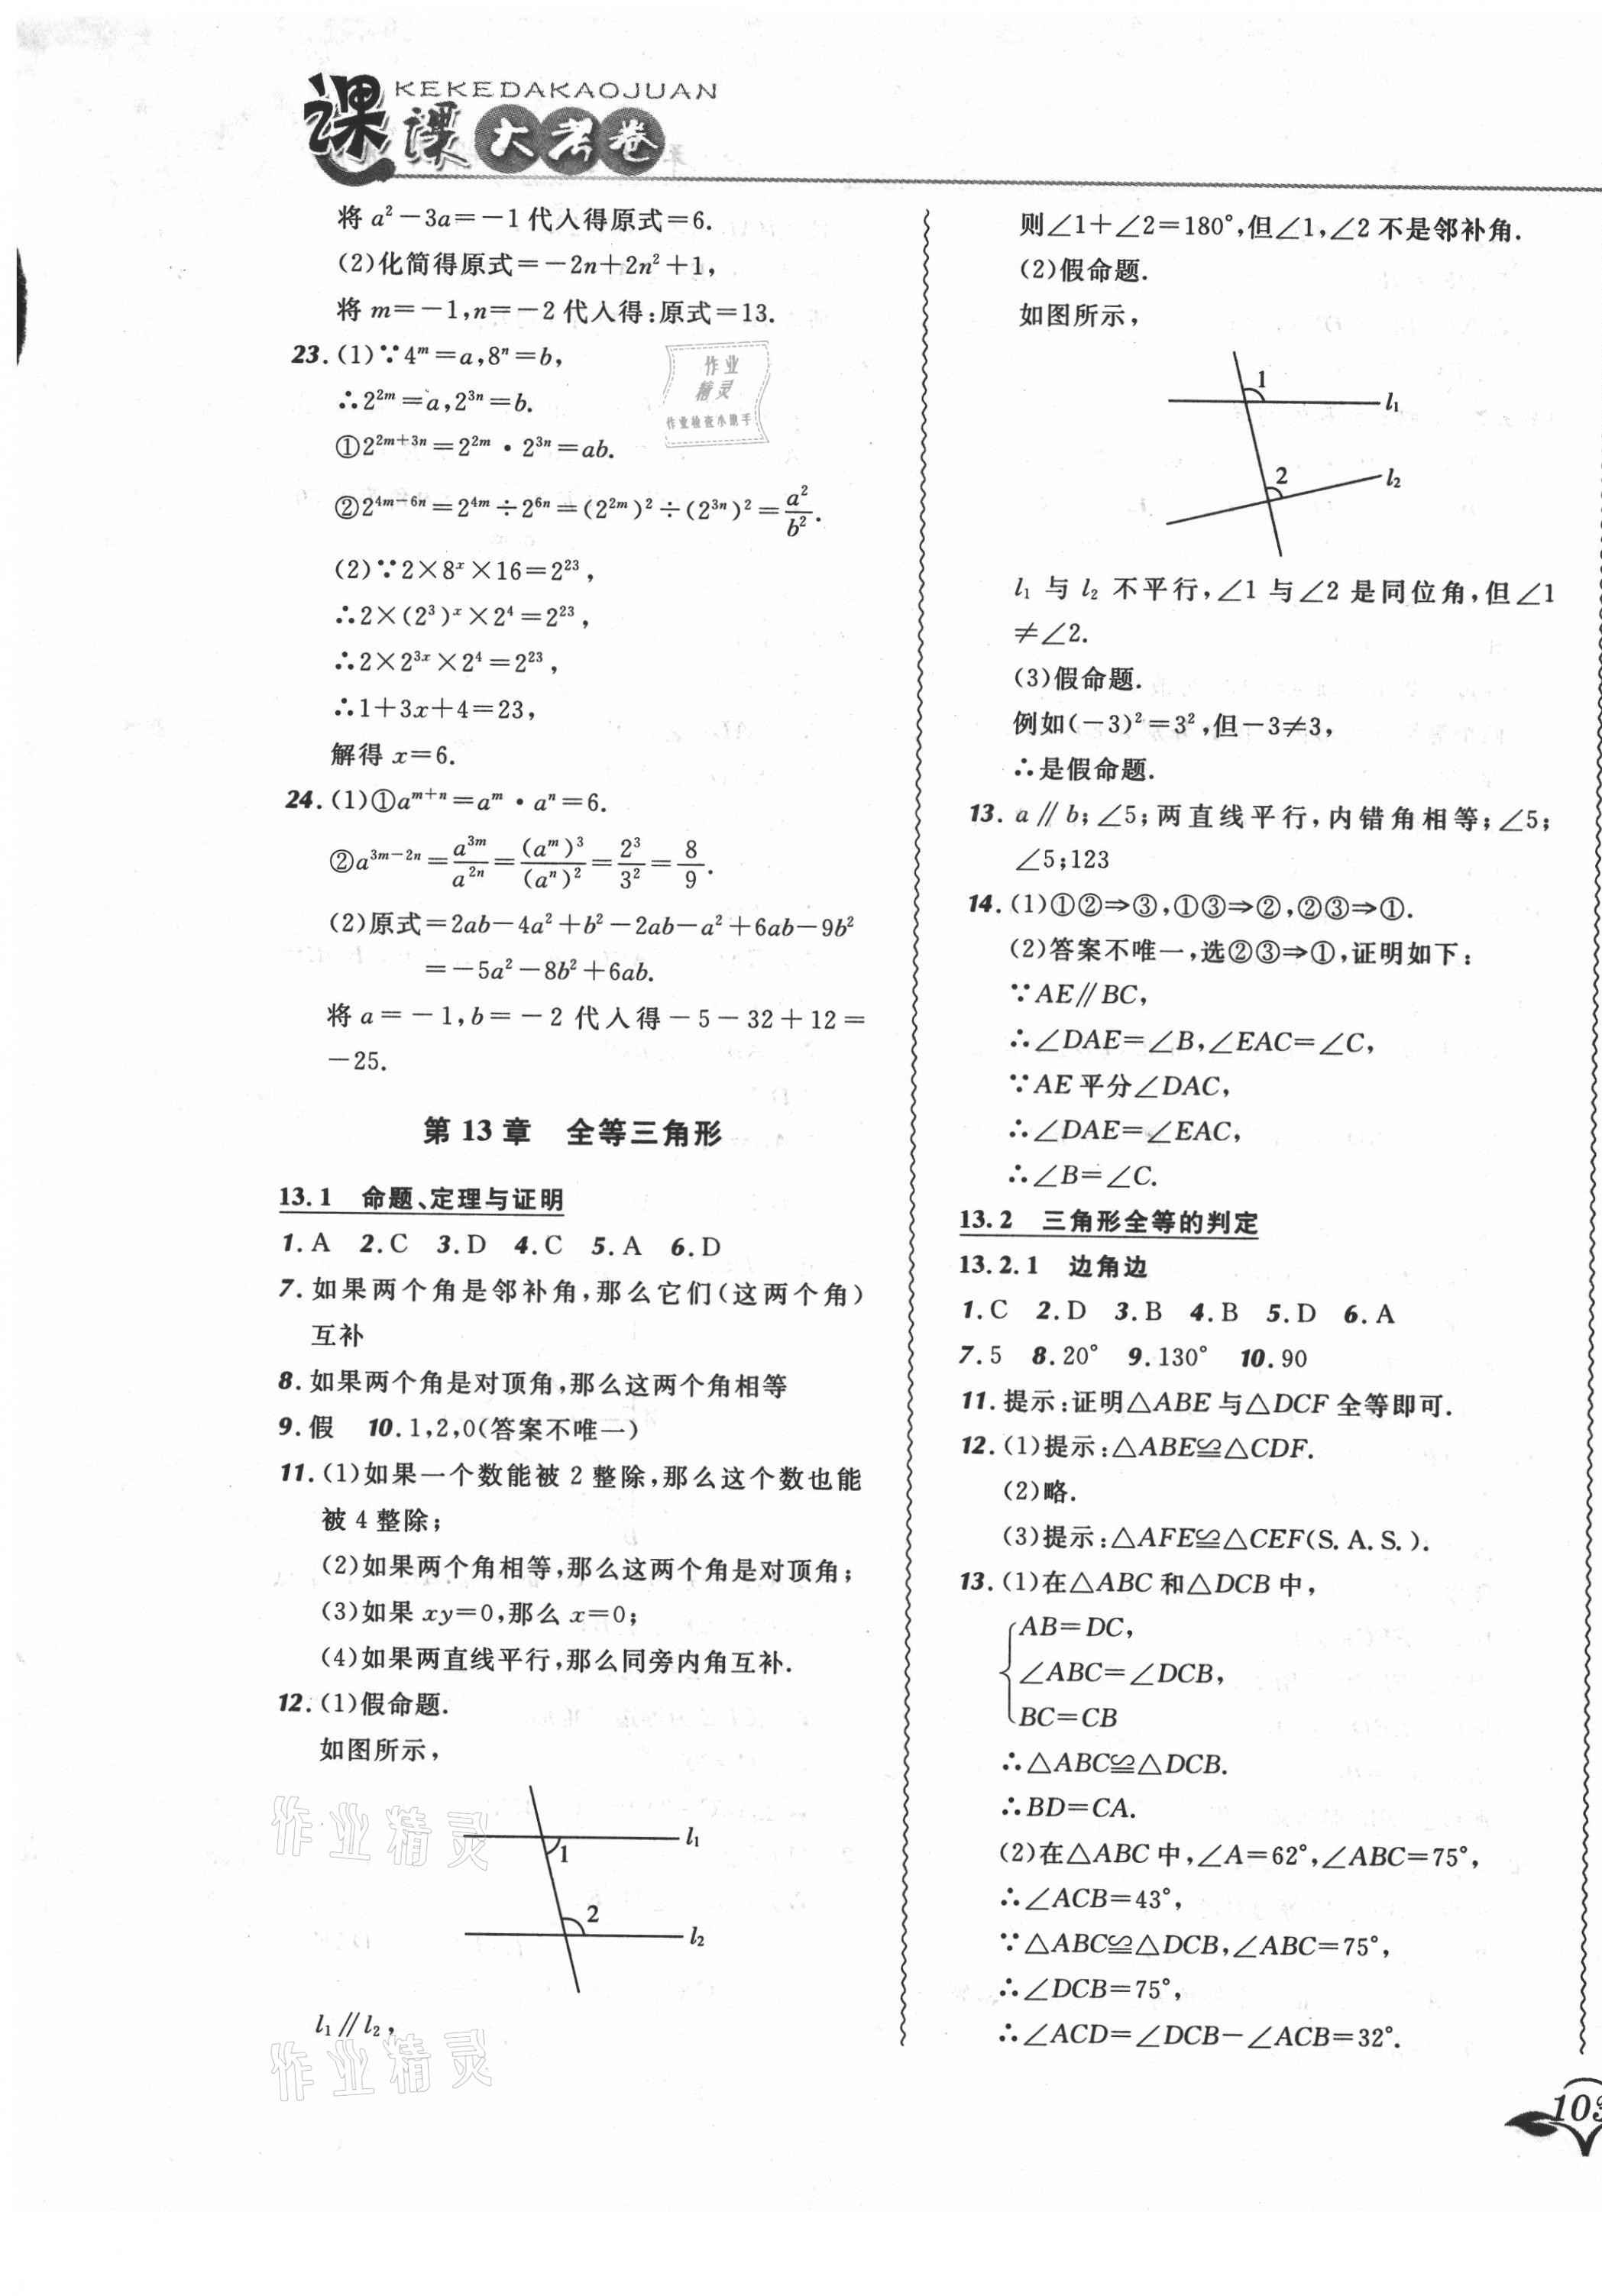 KEKEDAKAOJUAN
课课大考卷
将 a²－3a＝－1代入得原式＝6.
(2)化简得原式＝－2n＋2n²＋1,
将 m＝－1,n＝－2代入得:原式＝13.
23.(1)∵4ᵐ＝a,8ⁿ＝b,
∴2²ᵐ＝a,2³ⁿ＝b.
①2²ᵐ⁺³ⁿ＝2²ᵐ·2³ⁿ＝ab.
②2⁴ᵐ⁻⁶ⁿ＝2⁴ᵐ÷2⁶ⁿ＝(2²ᵐ)²÷(2³ⁿ)²＝a²/b².
(2)∵2×8ˣ×16＝2²³,
∴2×(2³)ˣ×2⁴＝2²³,
∴2×2³ˣ×2⁴＝2²³,
∴1＋3x＋4＝23,
解得 x＝6.
24.(1)①aᵐ⁺ⁿ＝aᵐ·aⁿ＝6.
②a³ᵐ⁻²ⁿ＝a³ᵐ/a²ⁿ＝(aᵐ)³/(aⁿ)²＝2³/3²＝8/9.
(2)原式＝2ab－4a²＋b²－2ab－a²＋6ab－9b²
＝－5a²－8b²＋6ab.
将 a＝－1,b＝－2 代入得－5－32＋12＝
－25.
第 13 章　全等三角形
13.1　命题、定理与证明
1.A　2.C　3.D　4.C　5.A　6.D
7.如果两个角是邻补角,那么它们(这两个角)
互补
8.如果两个角是对顶角,那么这两个角相等
9.假　10.1,2,0(答案不唯一)
11.(1)如果一个数能被 2 整除,那么这个数也能
被 4 整除;
(2)如果两个角相等,那么这两个角是对顶角;
(3)如果 xy＝0,那么 x＝0;
(4)如果两直线平行,那么同旁内角互补.
12.(1)假命题.
如图所示,
l₁
1
2
l₂
l₁∥l₂,
作业精灵
作业检查小助手
作业精灵
作业精灵
则∠1＋∠2＝180°,但∠1,∠2 不是邻补角.
(2)假命题.
如图所示,
1
l₁
2
l₂
l₁ 与 l₂ 不平行,∠1 与∠2 是同位角,但∠1
≠∠2.
(3)假命题.
例如(－3)²＝3²,但－3≠3,
∴是假命题.
13.a∥b;∠5;两直线平行,内错角相等;∠5;
∠5;123
14.(1)①②⇒③,①③⇒②,②③⇒①.
(2)答案不唯一,选②③⇒①,证明如下:
∵AE∥BC,
∴∠DAE＝∠B,∠EAC＝∠C,
∵AE 平分∠DAC,
∴∠DAE＝∠EAC,
∴∠B＝∠C.
13.2　三角形全等的判定
13.2.1　边角边
1.C　2.D　3.B　4.B　5.D　6.A
7.5　8.20°　9.130°　10.90
11.提示:证明△ABE 与△DCF 全等即可.
12.(1)提示:△ABE≌△CDF.
(2)略.
(3)提示:△AFE≌△CEF(S.A.S.).
13.(1)在△ABC 和△DCB 中,
AB＝DC,
∠ABC＝∠DCB,
BC＝CB
∴△ABC≌△DCB.
∴BD＝CA.
(2)在△ABC 中,∠A＝62°,∠ABC＝75°,
∴∠ACB＝43°,
∵△ABC≌△DCB,∠ABC＝75°,
∴∠DCB＝75°,
∴∠ACD＝∠DCB－∠ACB＝32°.
103